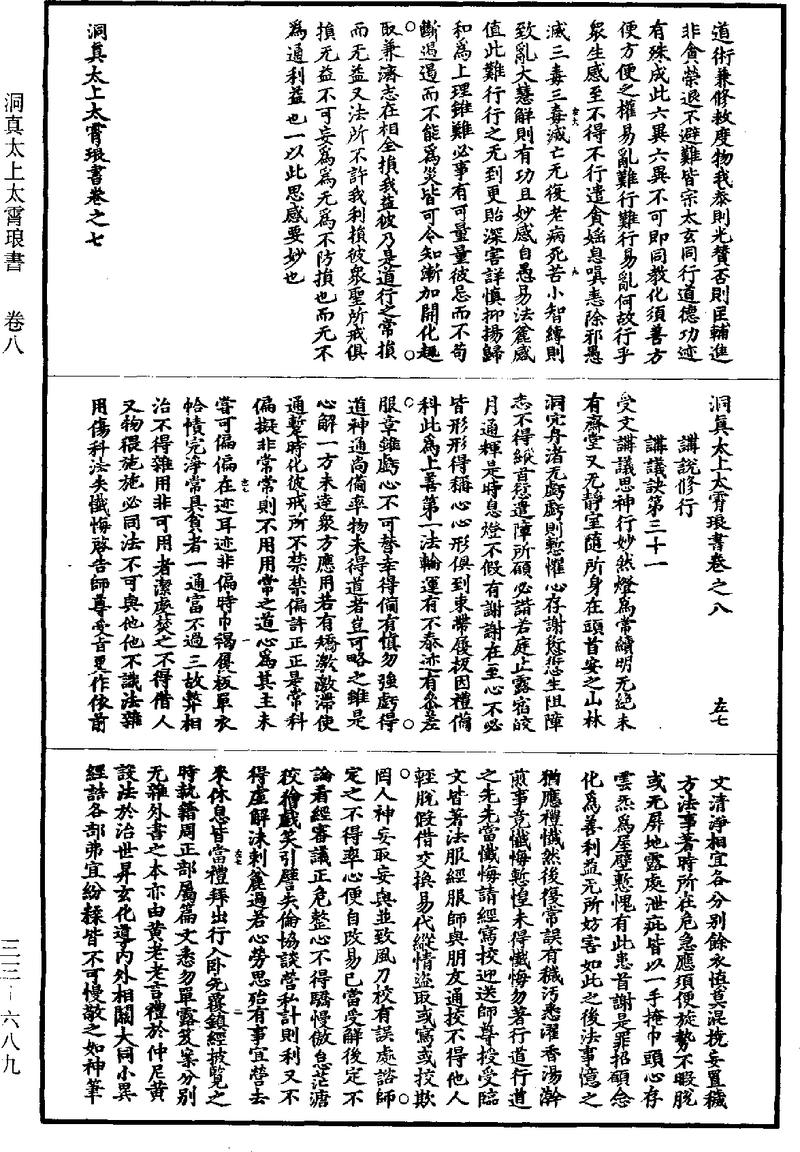 洞真太上太霄琅書　卷八
三三－六八九
道術兼修救度物我泰則光贊否則匡輔進
非貪榮退不避難皆宗太玄同行道德功迹
有殊成此六異六異不可即同教化須善方
便方便之權易亂難行難行易亂何故行乎
眾生感至不得不行遣貪婬息嗔恚除邪愚
滅三毒三毒滅亡无復老病死苦小智縛則
致亂大慧解則有功且妙感自愚易法麄感
值此難行行之无到更貽深害詳慎抑揚歸
和為上理雖難必事有可量量彼忌而不苟
斷過過而不能為災皆可令知漸加開化趣
取兼濟志在相全損我益彼乃是道行之常損
而无益又法所不許我利損彼眾聖所戒俱
損无益不可妄為為无為不防損也而无不
為通利益也一以此思感要妙也
洞真太上太霄琅書卷之七
洞真太上太霄琅書卷之八　左七
講說修行
講議訣第三十一
受文講議思神行妙然燈為常續明无絕未
有齋堂又无靜室隨所身在頭首安之山林
洞穴舟渚无虧虧則懃懼心存謝愆愆生阻障
恚不得縱首愆遣障所願必諧若庭止露宿皎
月通輝是時息燈不假有謝謝在至心不必
皆形形得稱心心形俱到束帶履扱因禮備
科此為上善第一法輪運有不泰迹有參差
服章雖虧心不可替幸得備有慎勿強虧得
道神通尚備率物未得道者豈可略之雖是
心解一方未達眾方應用若有矯激激滯使
通蹔時化彼戒所不禁禁偏許正正是常科
偏擬非常常則不用用常之道心為其主未
嘗可偏偏在迹耳迹非偏時巾褐履板單衣
帢幘完淨常具貧者一通富不過三故弊相
治不得雜用非可用者潔處焚之不得借人
又物猥施施必同法不可與他他不識法雜
用傷科法失懺悔啓告師尊受旨更作依前
文清淨相宜各分別餘衣慎莫混挽妄置穢
方法事著時所在危急應須便旋勢不暇脫
或无屏地露處泄疵皆以一手掩巾頭心存
雲炁為屋壁慙愧有此患首謝是罪招願念
化為善利益无所妨害如此之後法事憶之
猶應禮懺然後復常誤有穢污悉濯香湯澣
煎事竟懺悔慙惶未得懺悔勿著行道行道
之先先當懺悔請經寫校迎送師尊授受臨
文皆著法服經服師與朋友通校不得他人
輕脫假借交換易代縱情盜取或寫或挍欺
罔人神妄取妄與並致風刀校有誤處諮師
定之不得率心便自改易已當受解後定不
論看經審議正危整心不得驕慢傲怠茫瀇
挍獪戲笑引譬失倫協談營私計則利又不
得虛解沫剌麄過若心勞思殆有事宜營去
來休息皆當禮拜出行入卧先覆鎮經披覽之
時執籍周正部屬篇文悉勿單露及案分別
无雜外書之本亦由黃老老言禮於仲尼黃
設法於治世昇玄化導內外相關大同小異
經誥各部弗宜紛糅皆不可慢敬之如神筆